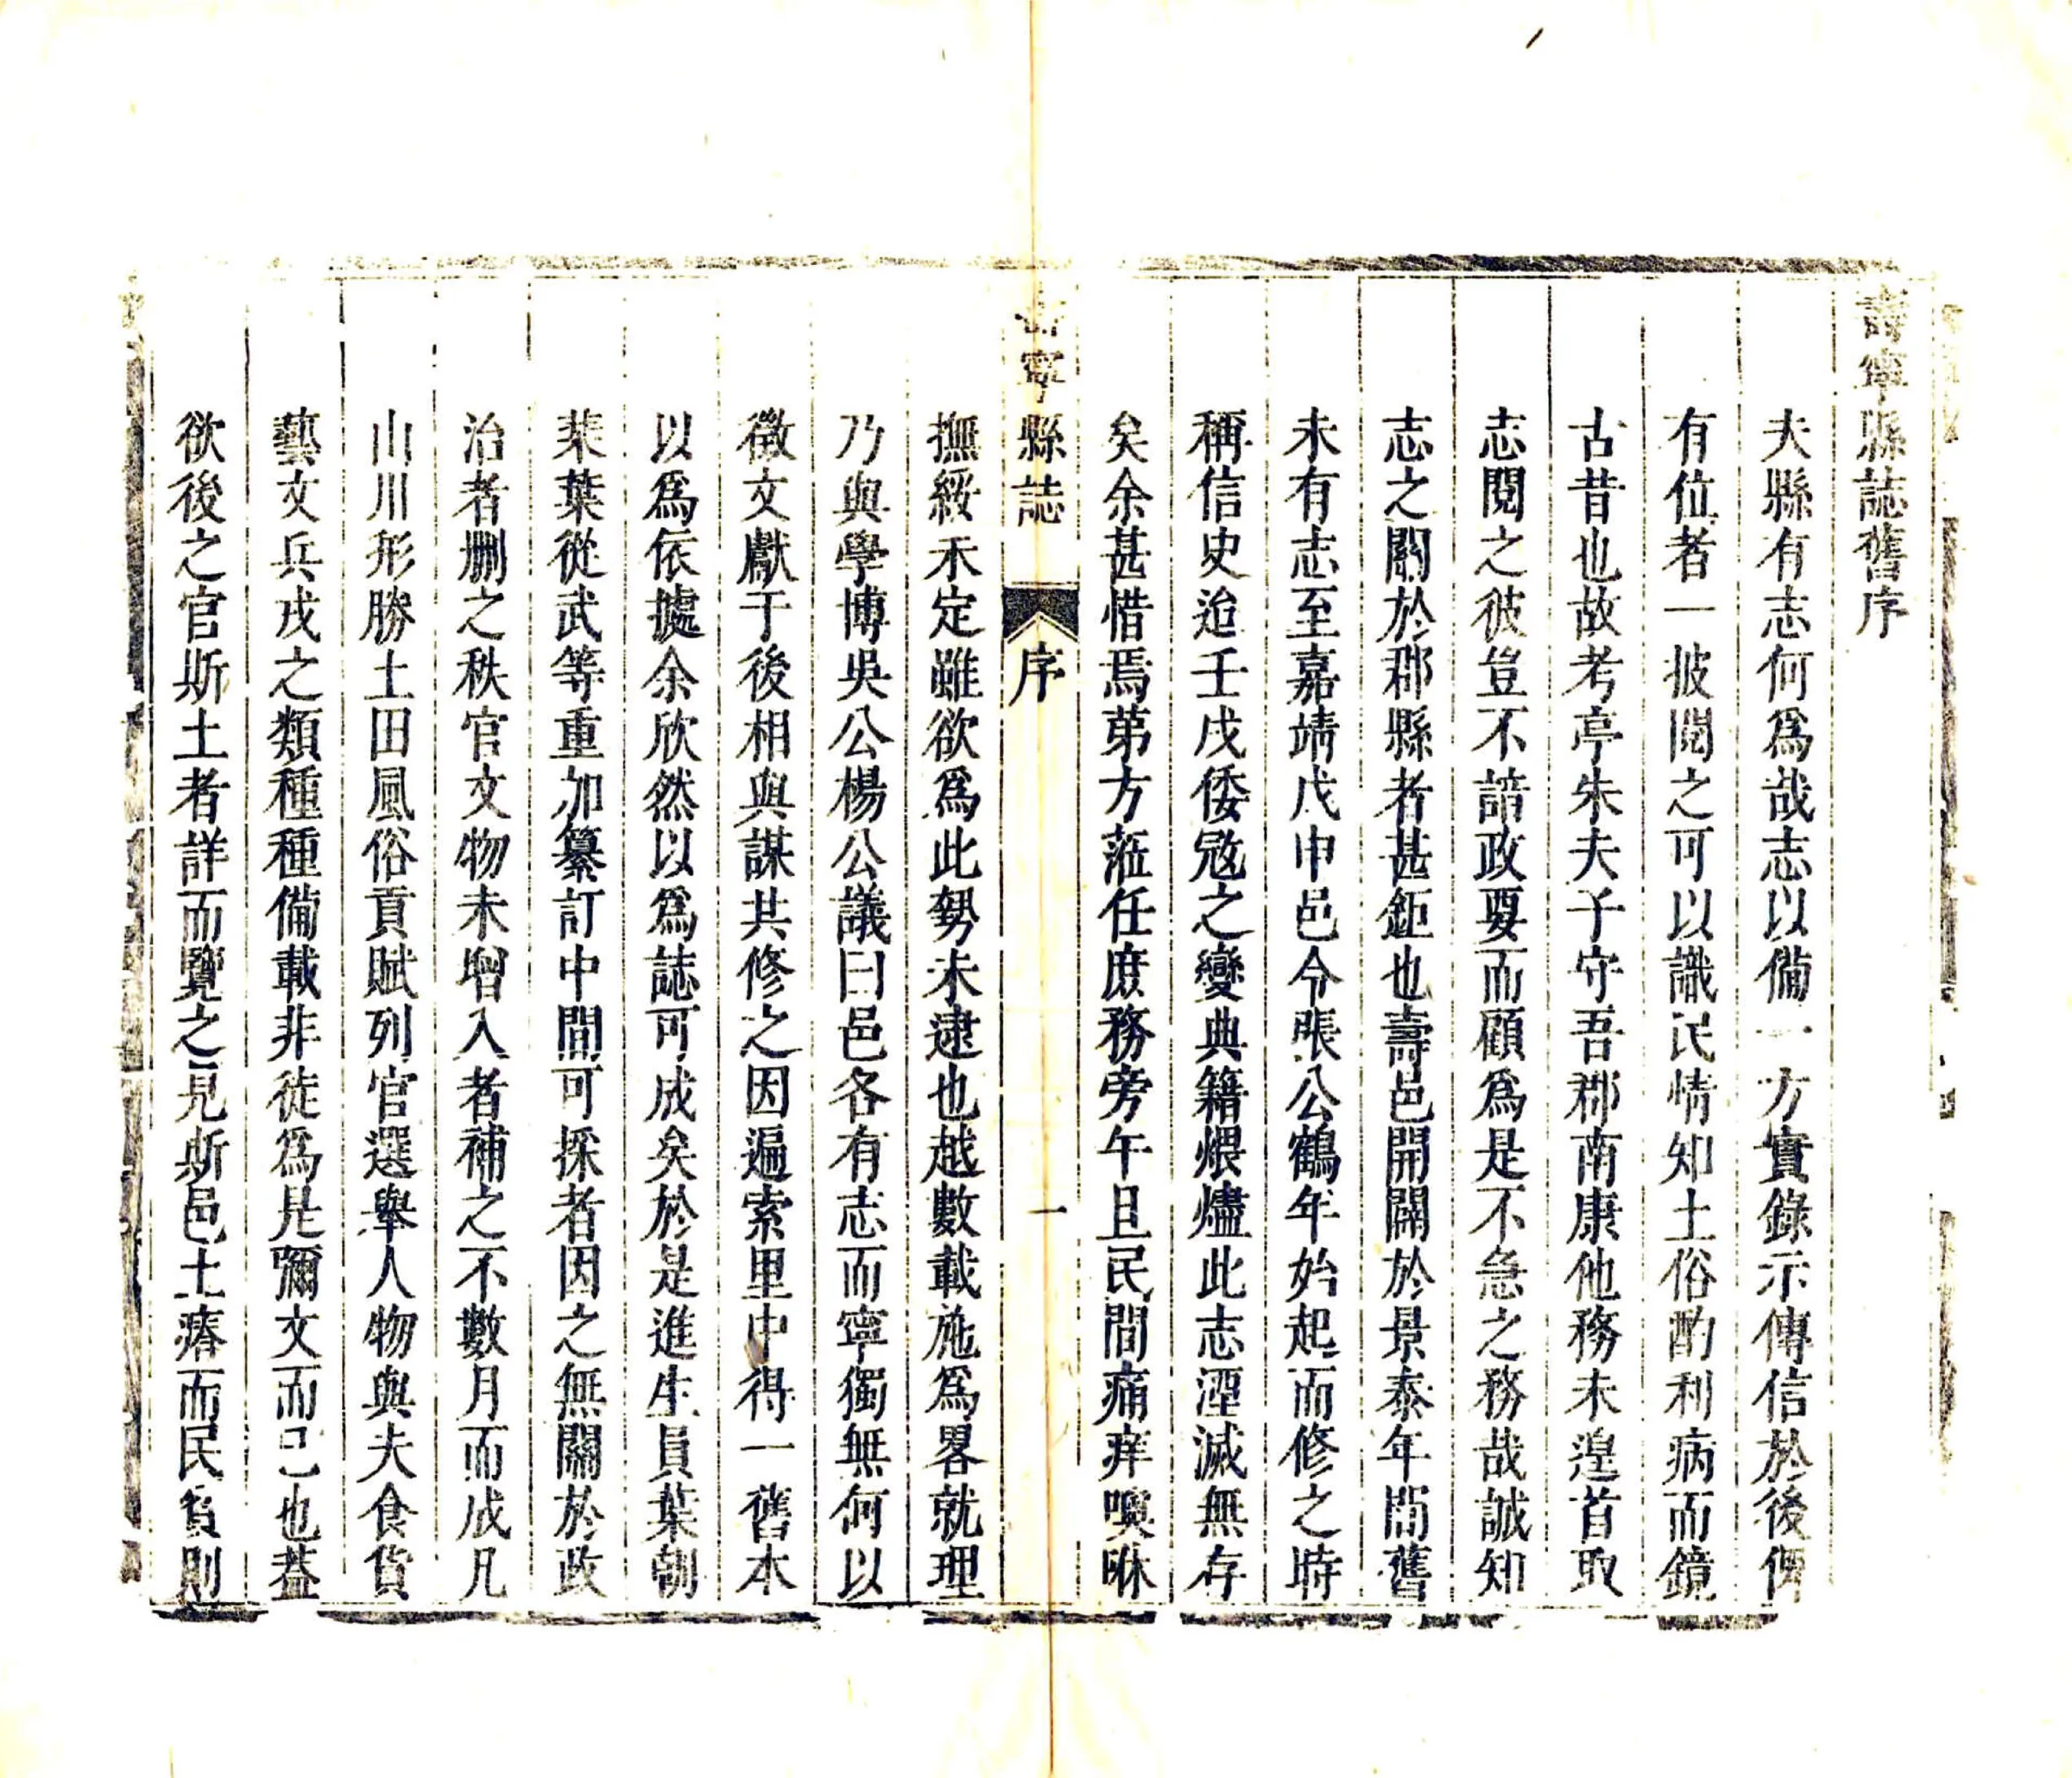 壽寧縣誌舊序
夫縣有志何爲哉志以備一方實錄示傳信於後俾
有位者一披閱之可以識民情知土俗酌利病而鏡
古昔也故考亭朱夫子守吾郡南康他務未遑首取
志閱之彼豈不諳政要而顧爲是不急之務哉誠知
志之關於郡縣者甚鉅也壽邑開闢於景泰年間舊
未有志至嘉靖戊申邑令張公鶴年始起而修之時
稱信史迨壬戌倭寇之變典籍煨燼此志湮滅無存
矣余甚惜焉第方蒞任庶務旁午且民間痛痒噢咻
壽寧縣誌 序 一
撫綏未定雖欲爲此勢未逮也越數載施爲畧就理
乃與學博吳公楊公議曰邑各有志而寧獨無何以
徵文獻于後相與謀共修之因遍索里中得一舊本
以爲依據余欣然以爲誌可成矣於是進生員葉朝
葉從武等重加纂訂中間可採者因之無關於政
治者刪之秩官文物未增入者補之不數月而成凡
山川形勝土田風俗貢賦列官選舉人物與夫食貨
藝文兵戎之類種種備載非徒爲是彌文而已也葢
欲後之官斯土者詳而覽之見斯邑土瘠而民貧則